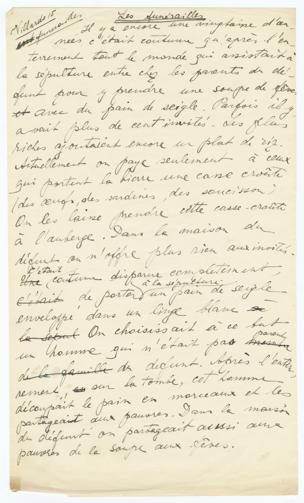 Villards 15
Les funérailles
Il y a encore une vingtaine d'an
nées c'était coutume qu'après l'en
terrement tout le monde qui assistait à
la sépulture entre chez les parents du dé
funt pour y prendre une soupe de fèves
et avec du pain de seigle. Parfois il y
avait plus de cent invités. Les plus
riches ajoutaient encore un plat de riz.
Actuellement on paye seulement à ceux
qui portent la bière une casse croûte
(des œufs, des sardines, des saucisson)
On les laisse prendre cette casse-croûte
à l'auberge. Dans la maison du
défunt on n'offre plus rien aux invités.
C'était
Une coutume disparue complètement,
à la sépulture
c'était de porter un pain de seigle
enveloppé dans un linge blanc à
la sepult On choisissait à ce but
parent
un homme qui n'était pas
de la famille du défunt. Après l'enter
rement sur la tombe, cet homme
découpait le pain en morceaux et les
partageait aux pauvres. Dans la maison
du défunt on partageait aussi aux
pauvres de la soupe aux fèves.